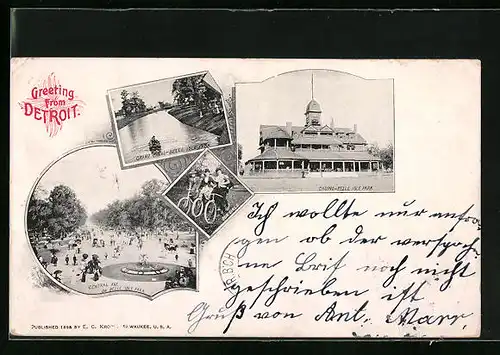 Greeting
from
DETROIT.
GRAND CANAL - BELLE ISLE PARK
CASINO - BELLE ISLE PARK
CENTRAL AVE.
BELLE ISLE PARK.
Ich wollte nur anfra-
gen ob der versproch-
ne Brif noch nicht
geschrieben ist
Gruß von Ant. Marr,
PUBLISHED 1898 BY E. C. MILWAUKEE, U. S. A.